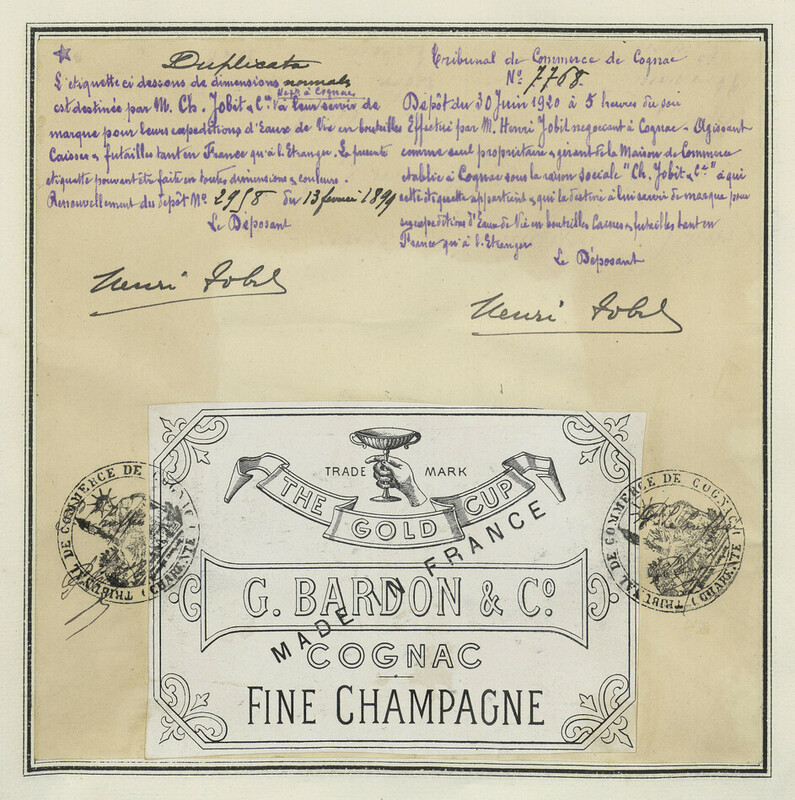 Duplicata
L'etiquette ci dessous de dimensions normales
Negt à Cognac
est destinée par M. Ch. Jobit & Cie à leur servir de
marque pour leurs expeditions d'Eaux de Vie en bouteilles
Caisses & futailles tant en France qu'à l'Etranger. La presente
etiquette pouvant être fait en toutes dimensions & couleurs.
Renouvellement du depôt No 2958 du 13 fevrier 1899
Le Déposant
Henri Jobit
Tribunal de Commerce de Cognac
No 7768.
Depôt du 30 Juin 1920 à 5 heures du soir
Effectué par M. Henri Jobit negociant à Cognac - Agissant
comme seul propriétaire & gérant de la Maison de Commerce
etablie à Cognac sous la raison sociale "Ch. Jobit & Cie" à qui
cette étiquette appartient & qui la destine à lui servir de marque pour
ses expeditions d'Eaux de Vie en bouteilles Caisses & futailles tant en
France qu'à l'Etranger
Le Déposant
Henri Jobit
TRADE MARK
THE GOLD CUP
G. BARDON & Co.
MADE IN FRANCE
COGNAC
FINE CHAMPAGNE
TRIBUNAL DE COMMERCE DE COGNAC (CHARENTE)
TRIBUNAL DE COMMERCE DE COGNAC (CHARENTE)